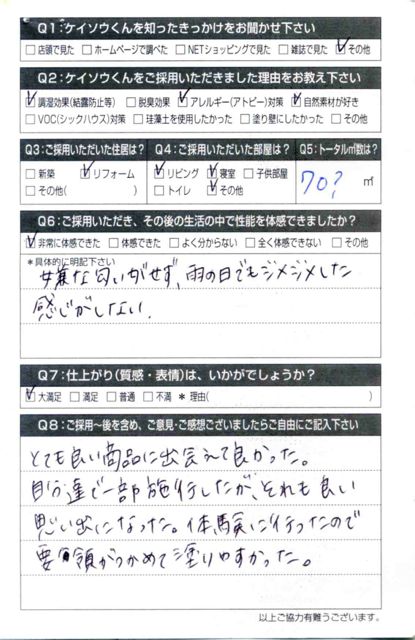 Q1:ケイソウくんを知ったきっかけをお聞かせ下さい
□店頭で見た □ホームページで調べた □NETショッピングで見た □雑誌で見た ☑その他
Q2:ケイソウくんをご採用いただきました理由をお教え下さい
☑調湿効果(結露防止等) □脱臭効果 ☑アレルギー(アトピー)対策 ☑自然素材が好き
□VOC(シックハウス)対策 □珪藻土を使用したかった □塗り壁にしたかった □その他
Q3:ご採用いただいた住居は? Q4:ご採用いただいた部屋は? Q5:トータル㎡数は?
□新築 ☑リフォーム ☑リビング ☑寝室 □子供部屋 70? ㎡
□その他( ) □トイレ ☑その他
Q6:ご採用いただき、その後の生活の中で性能を体感できましたか?
☑非常に体感できた □体感できた □よく分からない □全く体感できない □その他
*具体的に明記下さい
嫌な匂いがせず、雨の日でもジメジメした
感じがしない.
Q7:仕上がり(質感・表情)は、いかがでしょうか?
☑大満足 □満足 □普通 □不満 * 理由( )
Q8:ご採用~後を含め、ご意見・ご感想ございましたらご自由にご記入下さい
とても良い商品に出会えて良かった。
自分達で一部施行したが、それも良い
思い出になった。体験に行ったので
要領がつかめて塗りやすかった。
以上ご協力有難うございます。